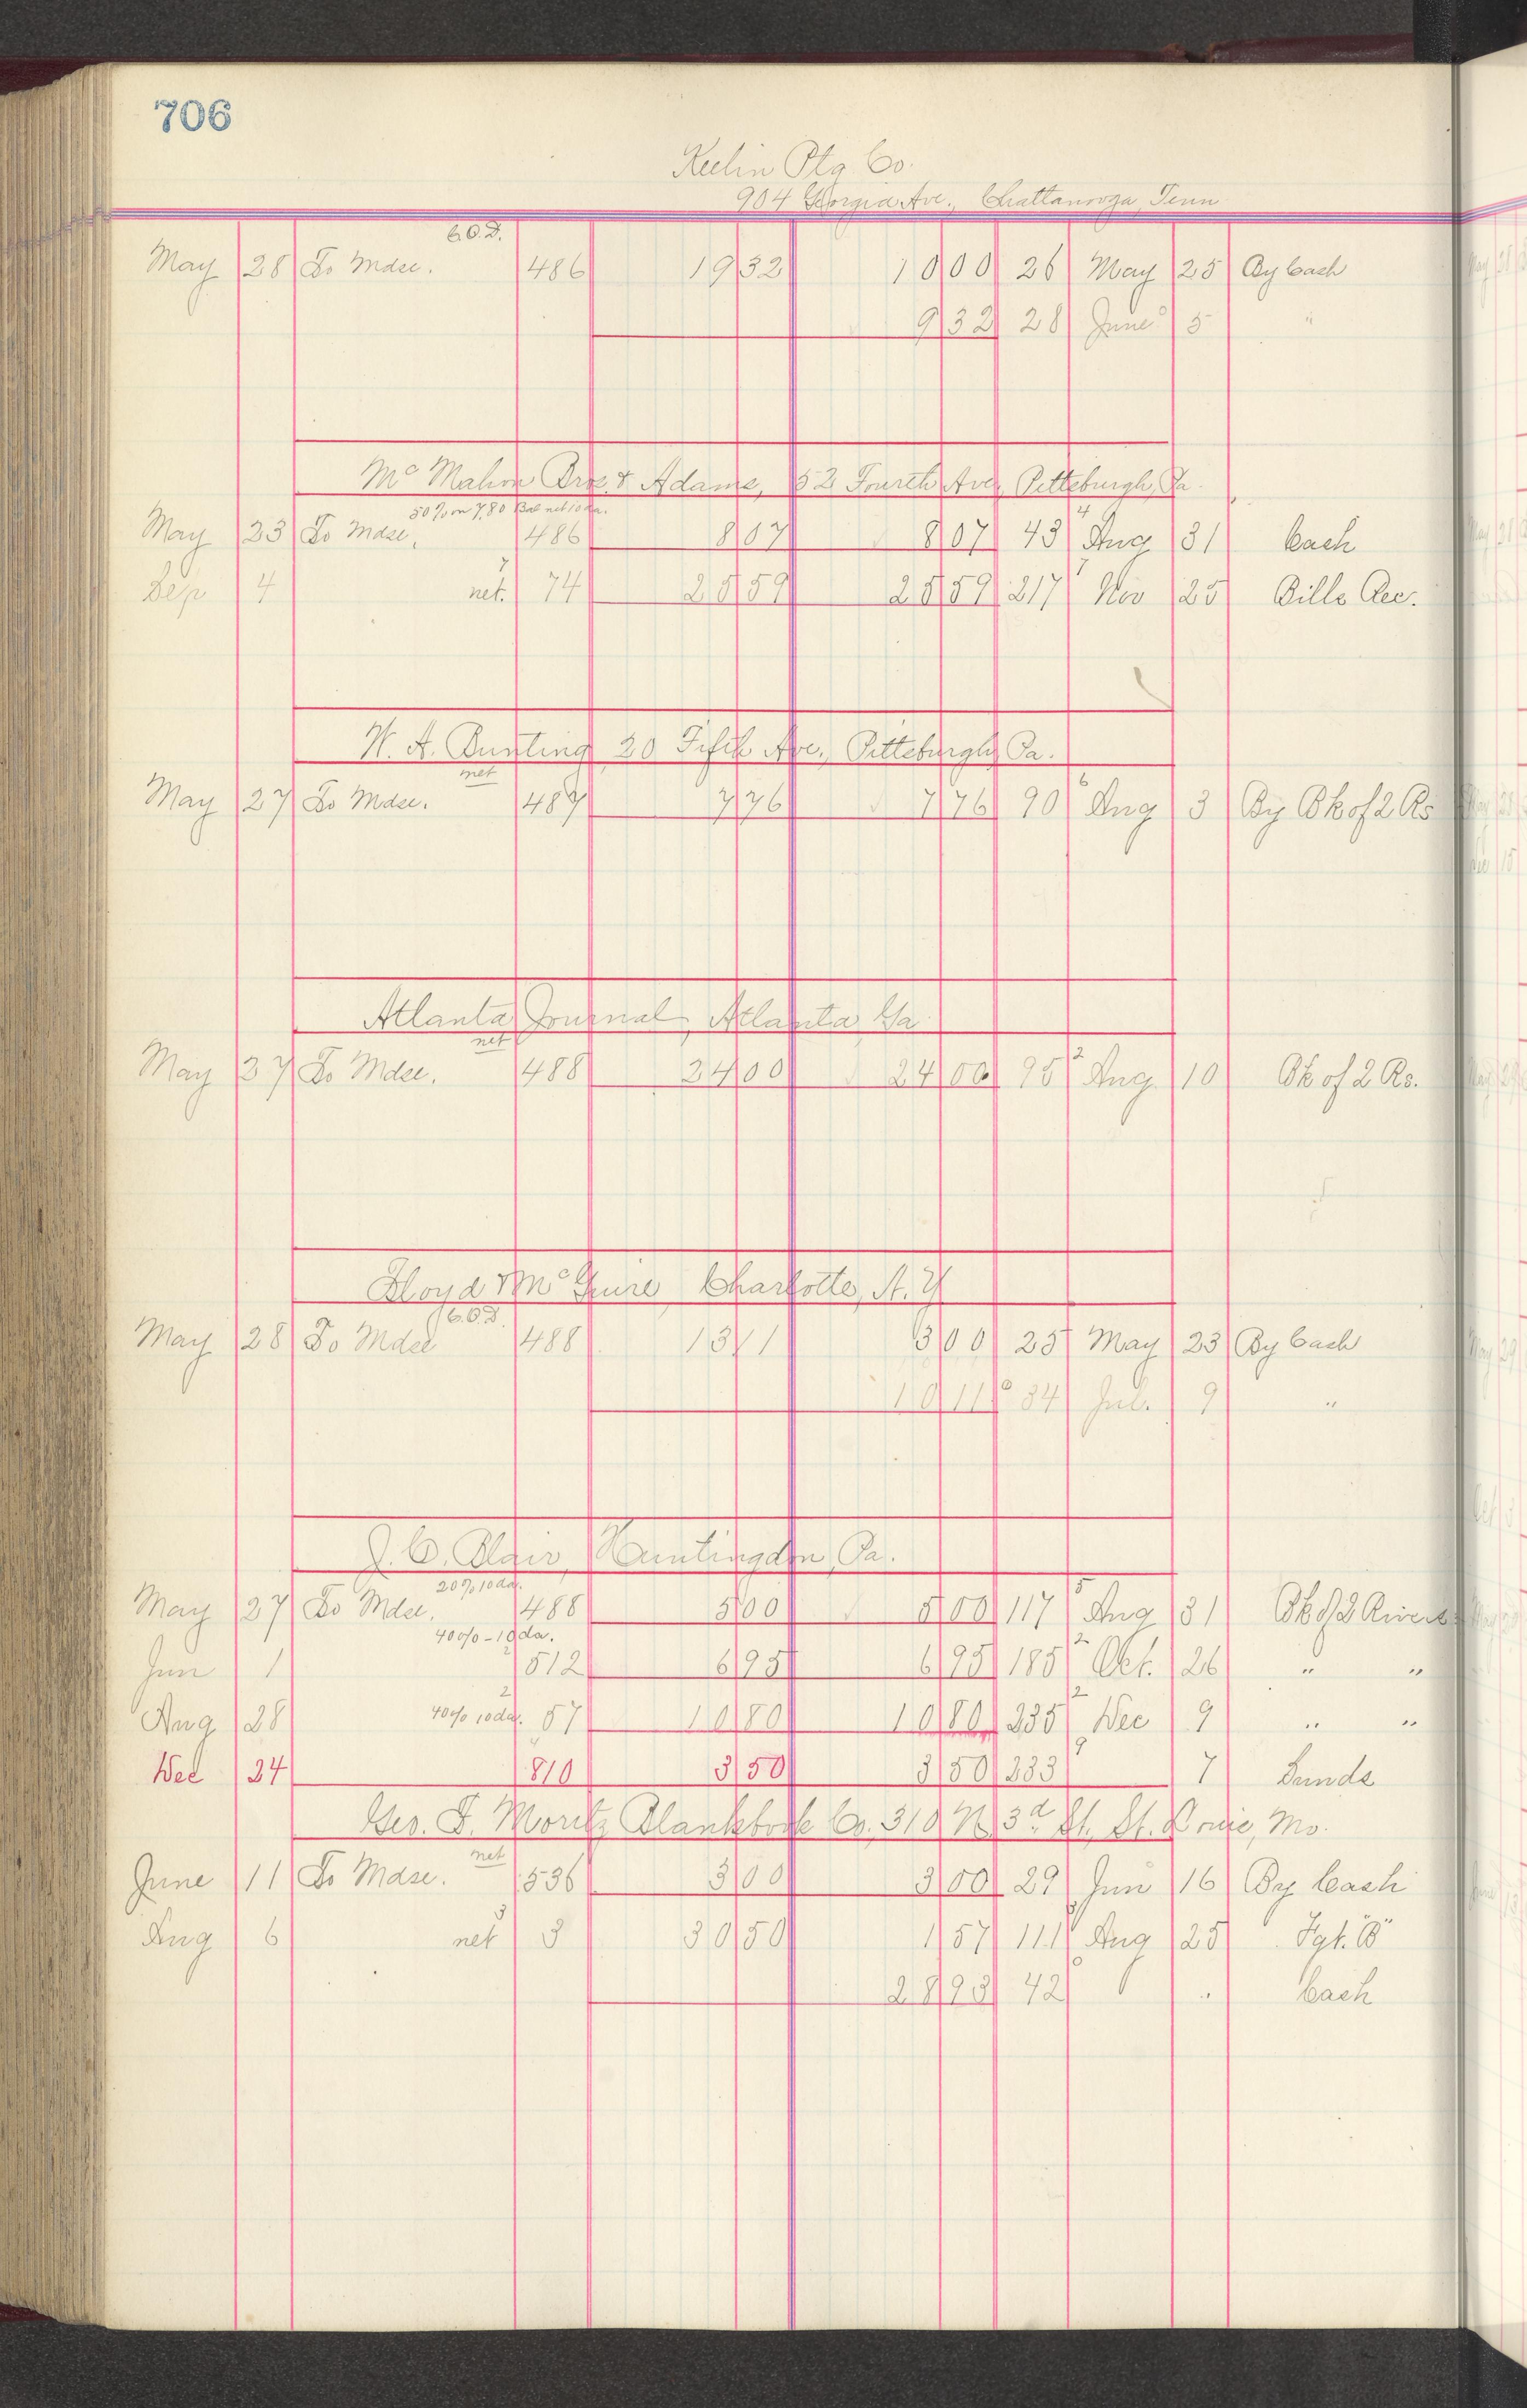 706
Keelin Ptg. Co.
904 Georgia Ave., Chattanooga, Tenn
C.O.D.
May 28 To Mdse. 486 19 32 10 00 26 May 25 By Cash
9 32 28 June 5 "
McMahon Bros. & Adams, 52 Fourth Ave, Pittsburgh, Pa.
50% on 7.80 Bal net 10 da.
May 23 To Mdse. 486 8 07 8 07 43 Aug 31 Cash
Sep 4 net. 74 25 59 25 59 217 Nov 25 Bills Rec.
W. A. Bunting 20 Fifth Ave., Pittsburgh, Pa.
net
May 27 To Mdse. 487 7 76 7 76 90 Aug 3 By Bk of 2 Rs
Atlanta Journal, Atlanta Ga
net
May 27 To Mdse. 488 24 00 24 00 95 Aug 10 Bk of 2 Rs.
Lloyd & McGuire Charlotte, N.Y
C.O.D.
May 28 To Mdse 488 13 11 3 00 25 May 23 By Cash
10 11 34 Jul. 9 "
J. C. Blair, Huntingdon, Pa.
20% 10 da.
May 27 To Mdse. 488 5 00 5 00 117 Aug 31 Bk of 2 Rivers
40% - 10 da.
Jun 1 512 6 95 6 95 185 Oct. 26 " "
Aug 28 40% 10 da. 57 10 80 10 80 235 Dec 9 " "
Dec 24 810 3 50 3 50 233 7 Sunds
Geo. F. Moritz Blankbook Co. 310 N. 3d St., St. Louis, Mo.
net
June 11 To Mdse. 536 3 00 3 00 29 Jun 16 By Cash
Aug 6 net 3 30 50 1 57 111 Aug 25 Fgt. "B"
28 93 42 " Cash